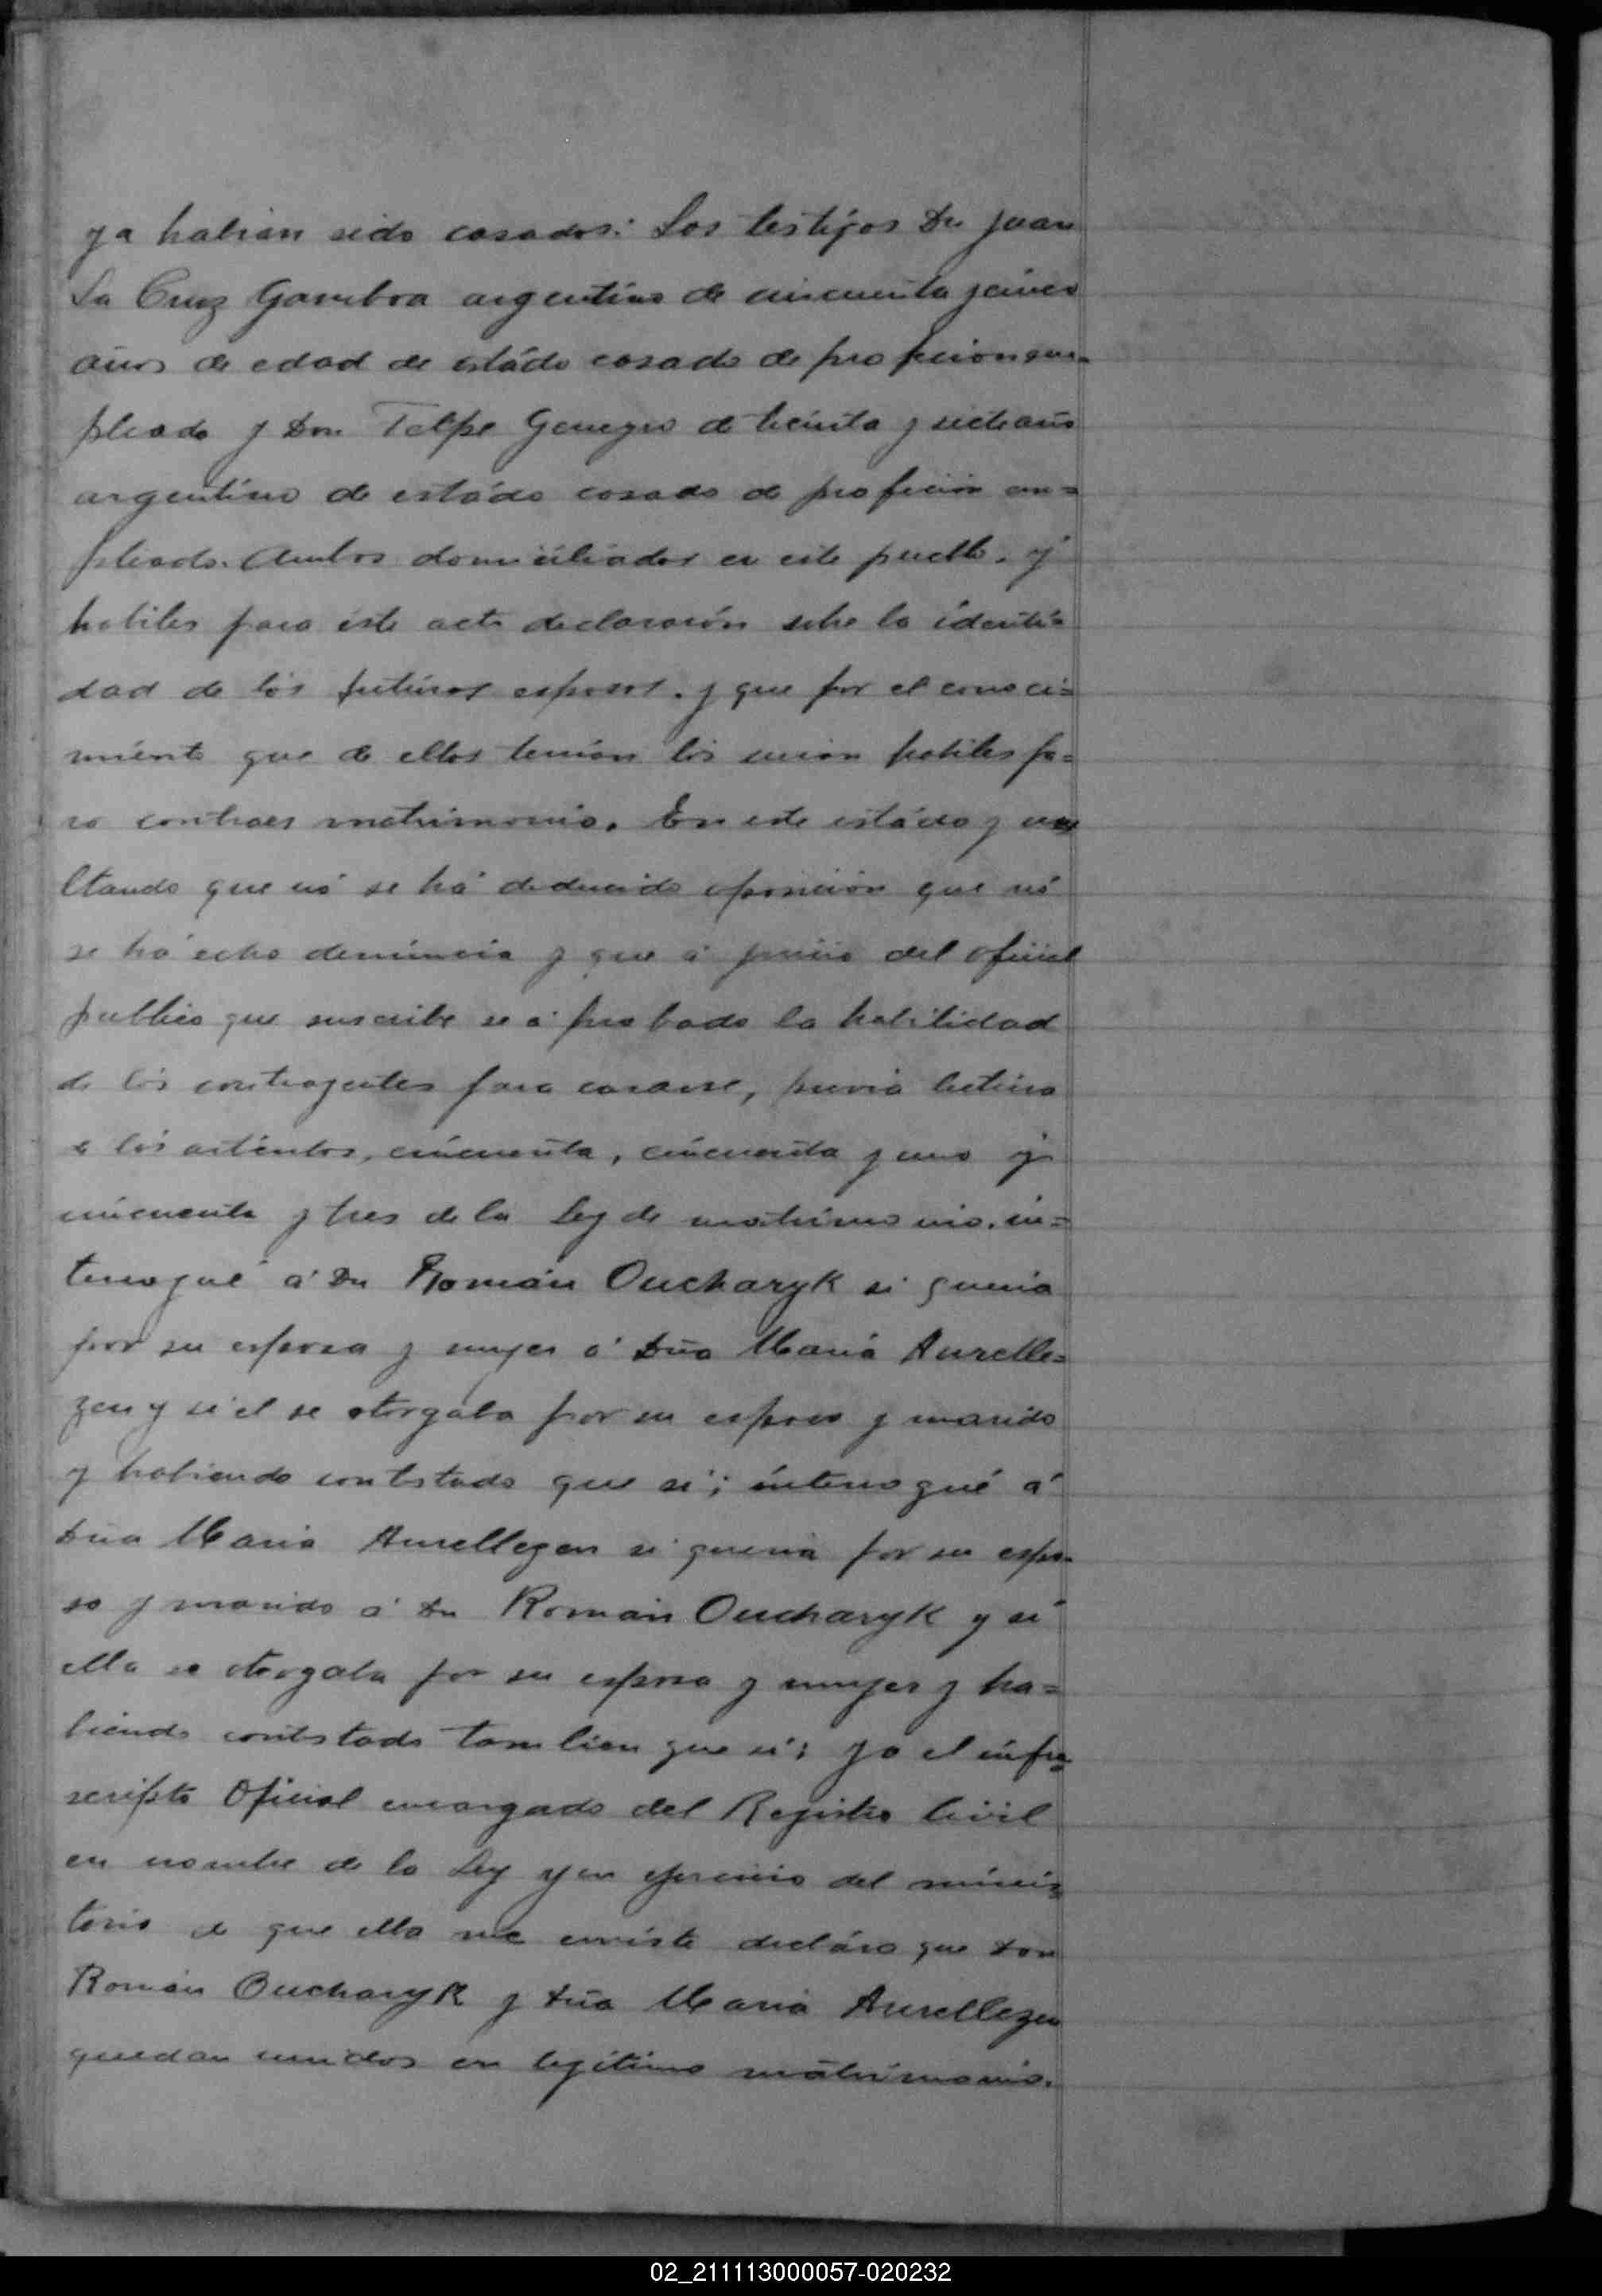 ya habian sido casados: Los testigos Dn Juan
La Cruz Gamboa argentino de cincuenta y cinco
años de edad de estádo casado de profecion em=
pleado y Don Telpe de treinta y siete años
argentino de estádo casado de profecion em=
pleado. Ambos domiciliados en este pueblo. y
habiles para éste acto declararón sobre la identi=
dad de lós futúros esposos. y que por el conoci=
miento que de ellos tenian lós creian habiles pa=
ra contraer matrimonio. En este estádo y
ltando que nó se há deducido oposición que nó
se há echo denúncia y que á juicio del oficial
publico que suscribe se á probado la habilidad
de lós contrayentes para casarse, previa lectúra
a lós artículos, cincuenta, cincuenta y uno y
cincuenta y tres de la Ley de matrimonio. in=
terrogué á Dn Román Oucharyk si queria
por su esposa y mujer á Dña Maria Aurelle=
zen y si el se otorgaba por su esposo y marido
y habiendo contestado que si; interrogué á
Dña Maria Aurellezen si queria por su espo=
so y marido á Dn Román Oucharyk y si
ella se otorgaba por su esposa y mujer y ha=
biendo contestado tambien que si; yo el infra=
scripto Oficial encargado del Registro Civil
en nombre de la Ley y en ejercicio del minis=
terio de que ella me enviste decláro que Don
Román Oucharyk y Dña Maria Aurellezen
quedan unidos en legitimo matrimonio.
02_211113000057-020232